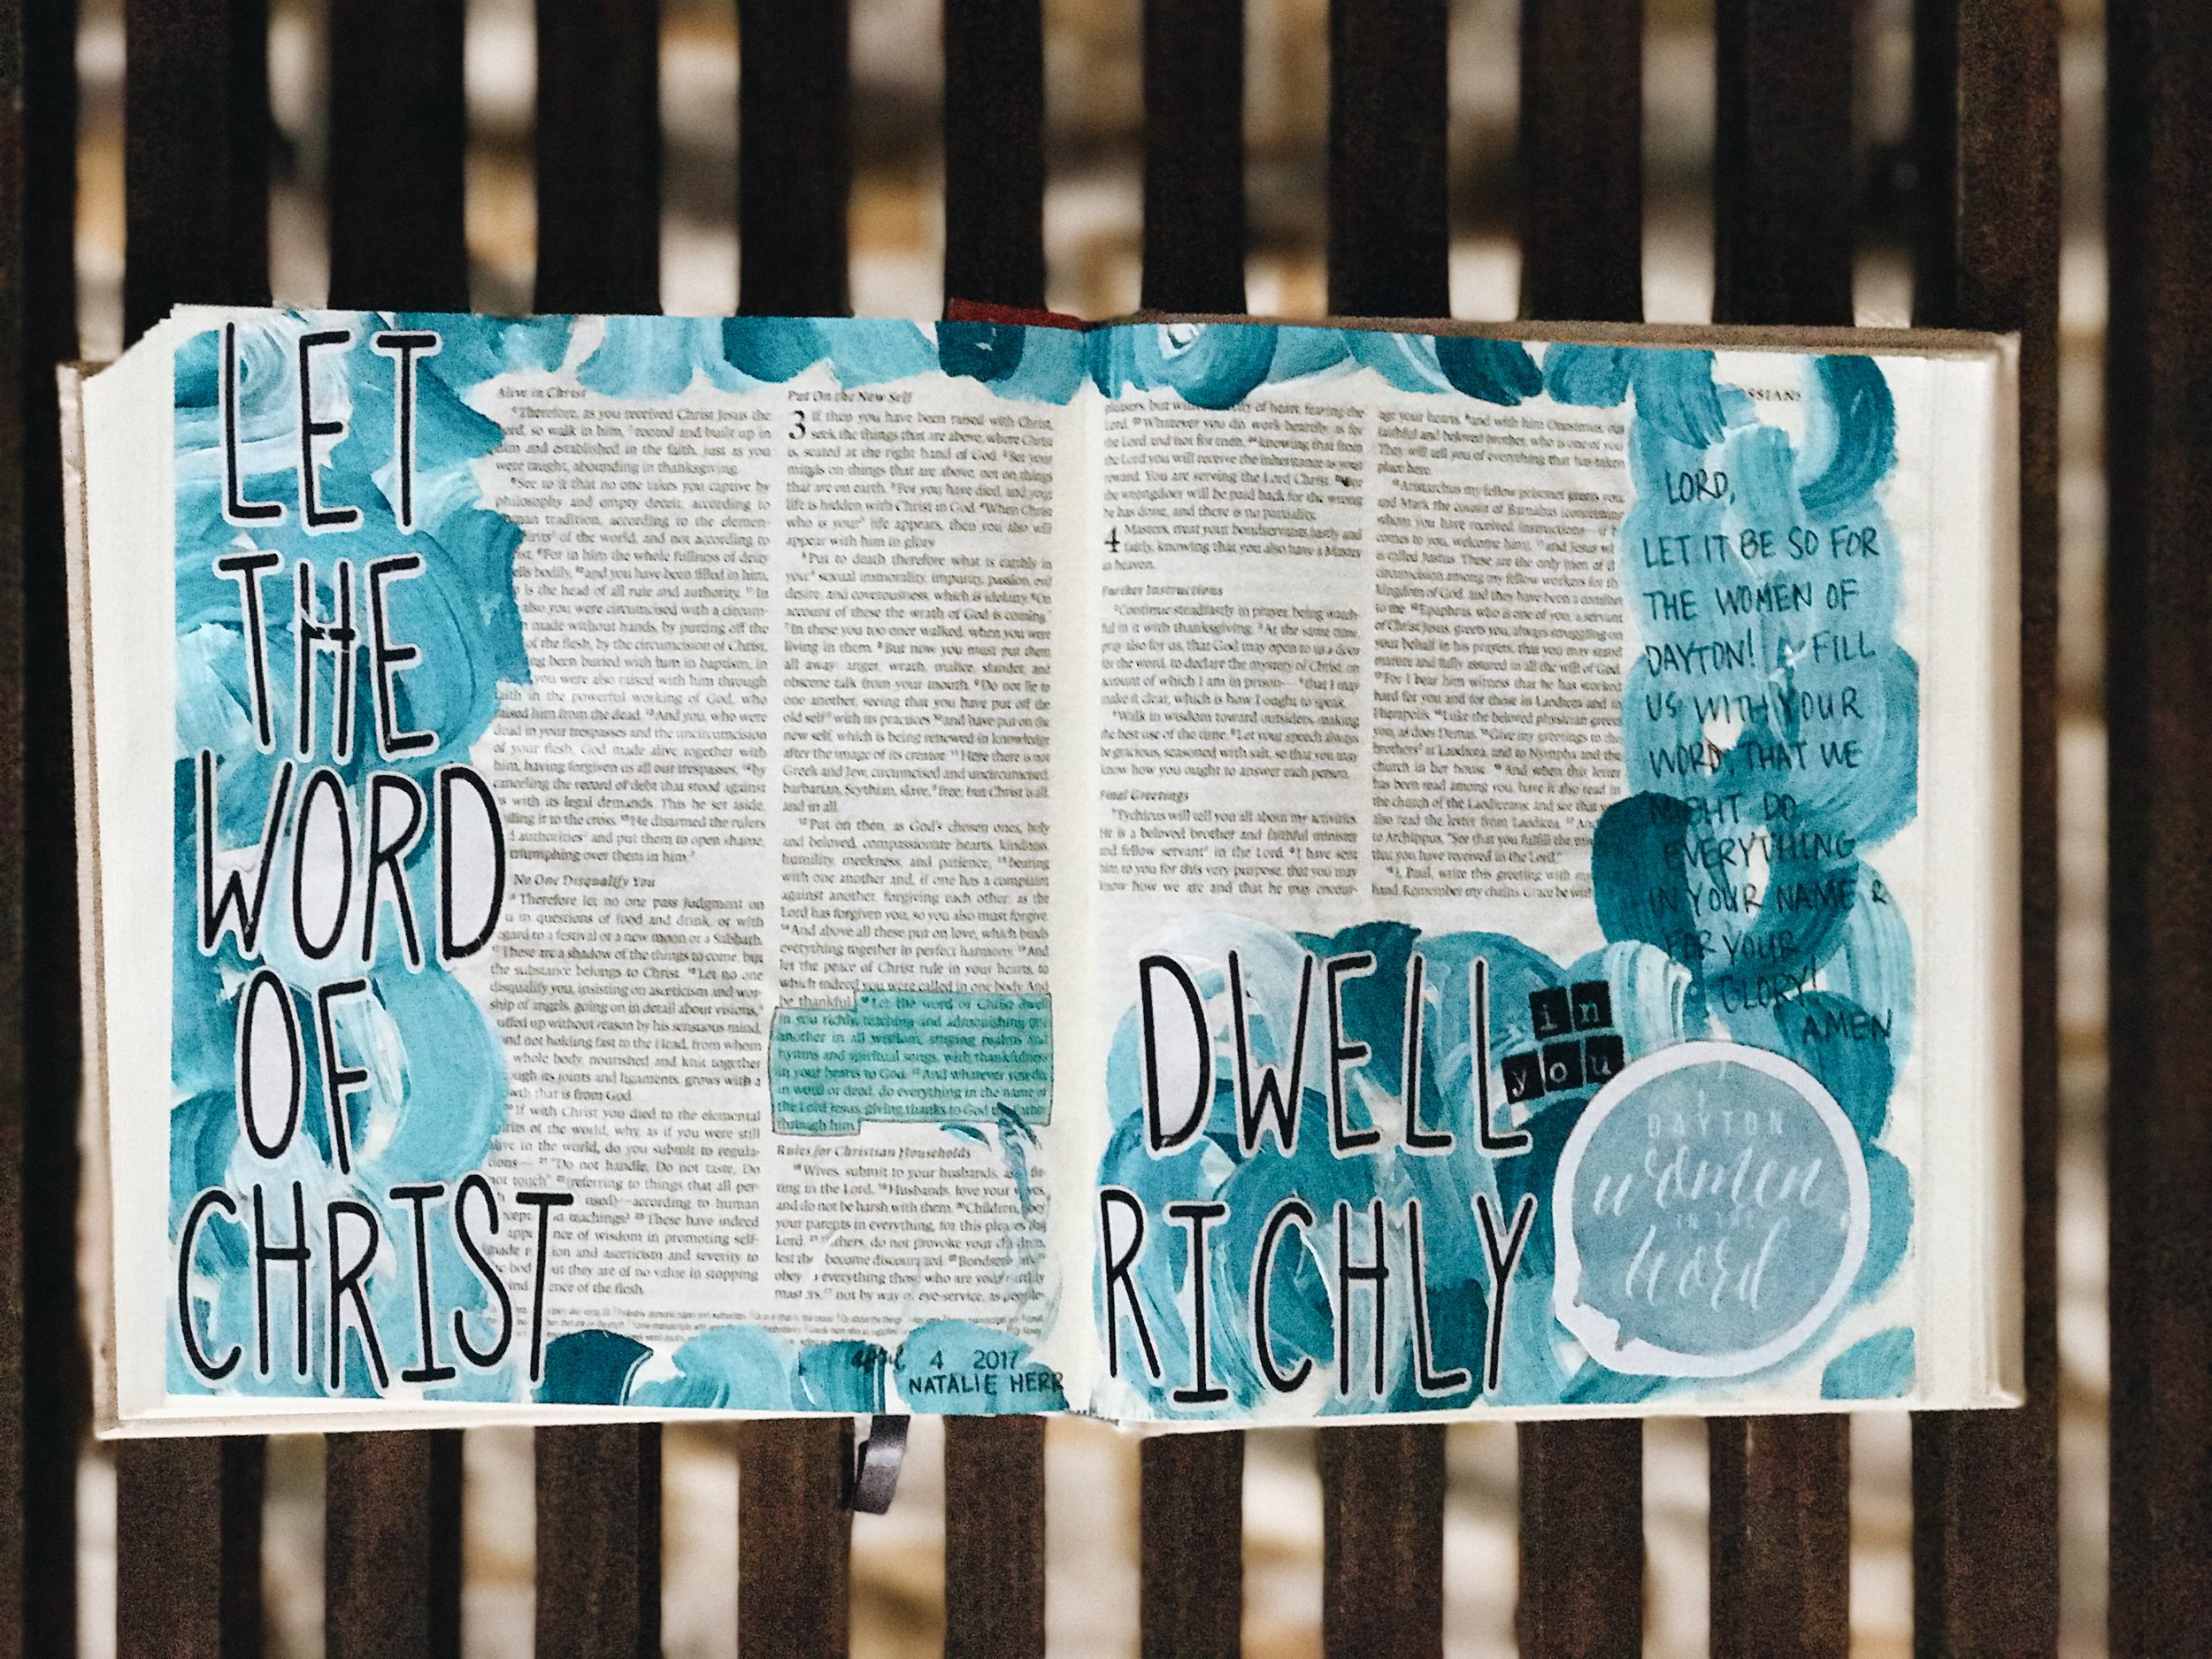 LET
THE
WORD
OF
CHRIST
Alive in Christ
6Therefore, as you received Christ Jesus the
so walk in him, 7rooted and built up in
him and established in the faith, just as you
were taught, abounding in thanksgiving.
8See to it that no one takes you captive by
philosophy and empty deceit, according to
tradition, according to the elemen-
of the world, and not according to
9For in him the whole fullness of deity
bodily, 10and you have been filled in him,
is the head of all rule and authority. 11In
also you were circumcised with a circum-
made without hands, by putting off the
of the flesh, by the circumcision of Christ,
been buried with him in baptism, in
you were also raised with him through
faith in the powerful working of God, who
raised him from the dead. 13And you, who were
dead in your trespasses and the uncircumcision
of your flesh, God made alive together with
him, having forgiven us all our trespasses, 14by
canceling the record of debt that stood against
us with its legal demands. This he set aside,
nailing it to the cross. 15He disarmed the rulers
authorities and put them to open shame,
triumphing over them in him.
No One Disqualify You
16Therefore let no one pass judgment on
in questions of food and drink, or with
regard to a festival or a new moon or a Sabbath.
17These are a shadow of the things to come, but
the substance belongs to Christ. 18Let no one
disqualify you, insisting on asceticism and wor-
ship of angels, going on in detail about visions,
puffed up without reason by his sensuous mind,
and not holding fast to the Head, from whom
whole body, nourished and knit together
its joints and ligaments, grows with a
that is from God.
20If with Christ you died to the elemental
spirits of the world, why, as if you were still
alive in the world, do you submit to regula-
tions— 21"Do not handle, Do not taste, Do
not touch" 22(referring to things that all per-
used)—according to human
teachings? 23These have indeed
of wisdom in promoting self-
and asceticism and severity to
but they are of no value in stopping
of the flesh.
Put On the New Self
3 If then you have been raised with Christ,
seek the things that are above, where Christ
is, seated at the right hand of God. 2Set your
minds on things that are above, not on things
that are on earth. 3For you have died, and your
life is hidden with Christ in God. 4When Christ
who is your life appears, then you also will
appear with him in glory.
5Put to death therefore what is earthly in
you: sexual immorality, impurity, passion, evil
desire, and covetousness, which is idolatry. 6On
account of these the wrath of God is coming.
7In these you too once walked, when you were
living in them. 8But now you must put them
all away: anger, wrath, malice, slander, and
obscene talk from your mouth. 9Do not lie to
one another, seeing that you have put off the
old self with its practices 10and have put on the
new self, which is being renewed in knowledge
after the image of its creator. 11Here there is not
Greek and Jew, circumcised and uncircumcised,
barbarian, Scythian, slave, free; but Christ is all,
and in all.
12Put on then, as God's chosen ones, holy
and beloved, compassionate hearts, kindness,
humility, meekness, and patience, 13bearing
with one another and, if one has a complaint
against another, forgiving each other; as the
Lord has forgiven you, so you also must forgive.
14And above all these put on love, which binds
everything together in perfect harmony. 15And
let the peace of Christ rule in your hearts, to
which indeed you were called in one body. And
be thankful. 16Let the word of Christ dwell
in you richly, teaching and admonishing one
another in all wisdom, singing psalms and
hymns and spiritual songs, with thankfulness
in your hearts to God. 17And whatever you do,
in word or deed, do everything in the name of
the Lord Jesus, giving thanks to God the Father
through him.
Rules for Christian Households
18Wives, submit to your husbands, as fit-
ting in the Lord. 19Husbands, love your wives,
and do not be harsh with them. 20Children, obey
your parents in everything, for this pleases the
Lord. 21Fathers, do not provoke your children,
lest they become discouraged. 22Bondservants,
obey everything those who are your earthly
masters, not by way of eye-service, as people-
April 4 2017
NATALIE HERR
pleasers, but with of heart, fearing the
Lord. 23Whatever you do, work heartily, as for
the Lord and not for men, 24knowing that from
the Lord you will receive the inheritance as your
reward. You are serving the Lord Christ. 25For
the wrongdoer will be paid back for the wrong
he has done, and there is no partiality.
4 Masters, treat your bondservants justly and
fairly, knowing that you also have a Master
in heaven.
Further Instructions
2Continue steadfastly in prayer, being watch-
ful in it with thanksgiving. 3At the same time,
pray also for us, that God may open to us a door
for the word, to declare the mystery of Christ, on
account of which I am in prison— 4that I may
make it clear, which is how I ought to speak.
5Walk in wisdom toward outsiders, making
the best use of the time. 6Let your speech always
be gracious, seasoned with salt, so that you may
know how you ought to answer each person.
Final Greetings
7Tychicus will tell you all about my activities.
He is a beloved brother and faithful minister
and fellow servant in the Lord. 8I have sent
him to you for this very purpose, that you may
know how we are and that he may encour-
age your hearts, 9and with him Onesimus, our
faithful and beloved brother, who is one of you.
They will tell you of everything that has taken
place here.
10Aristarchus my fellow prisoner greets you,
and Mark the cousin of Barnabas (concerning
whom you have received instructions—if
comes to you, welcome him), 11and Jesus
is called Justus. These are the only men of
circumcision among my fellow workers for
kingdom of God, and they have been a comfort
to me. 12Epaphras, who is one of you, a servant
of Christ Jesus, greets you, always struggling on
your behalf in his prayers, that you may stand
mature and fully assured in all the will of God.
13For I bear him witness that he has worked
hard for you and for those in Laodicea and in
Hierapolis. 14Luke the beloved physician greets
you, as does Demas. 15Give my greetings to the
brothers at Laodicea, and to Nympha and the
church in her house. 16And when this letter
has been read among you, have it also read in
the church of the Laodiceans; and see that you
also read the letter from Laodicea. 17And
to Archippus, "See that you fulfill the
that you have received in the Lord."
18I, Paul, write this greeting with my
hand. Remember my chains. Grace be with
LORD,
LET IT BE SO FOR
THE WOMEN OF
DAYTON! & FILL
US WITH YOUR
WORD, THAT WE
MIGHT DO
EVERYTHING
IN YOUR NAME &
FOR YOUR
GLORY!
AMEN
DWELL
in
you
RICHLY
DAYTON
women
IN THE
word